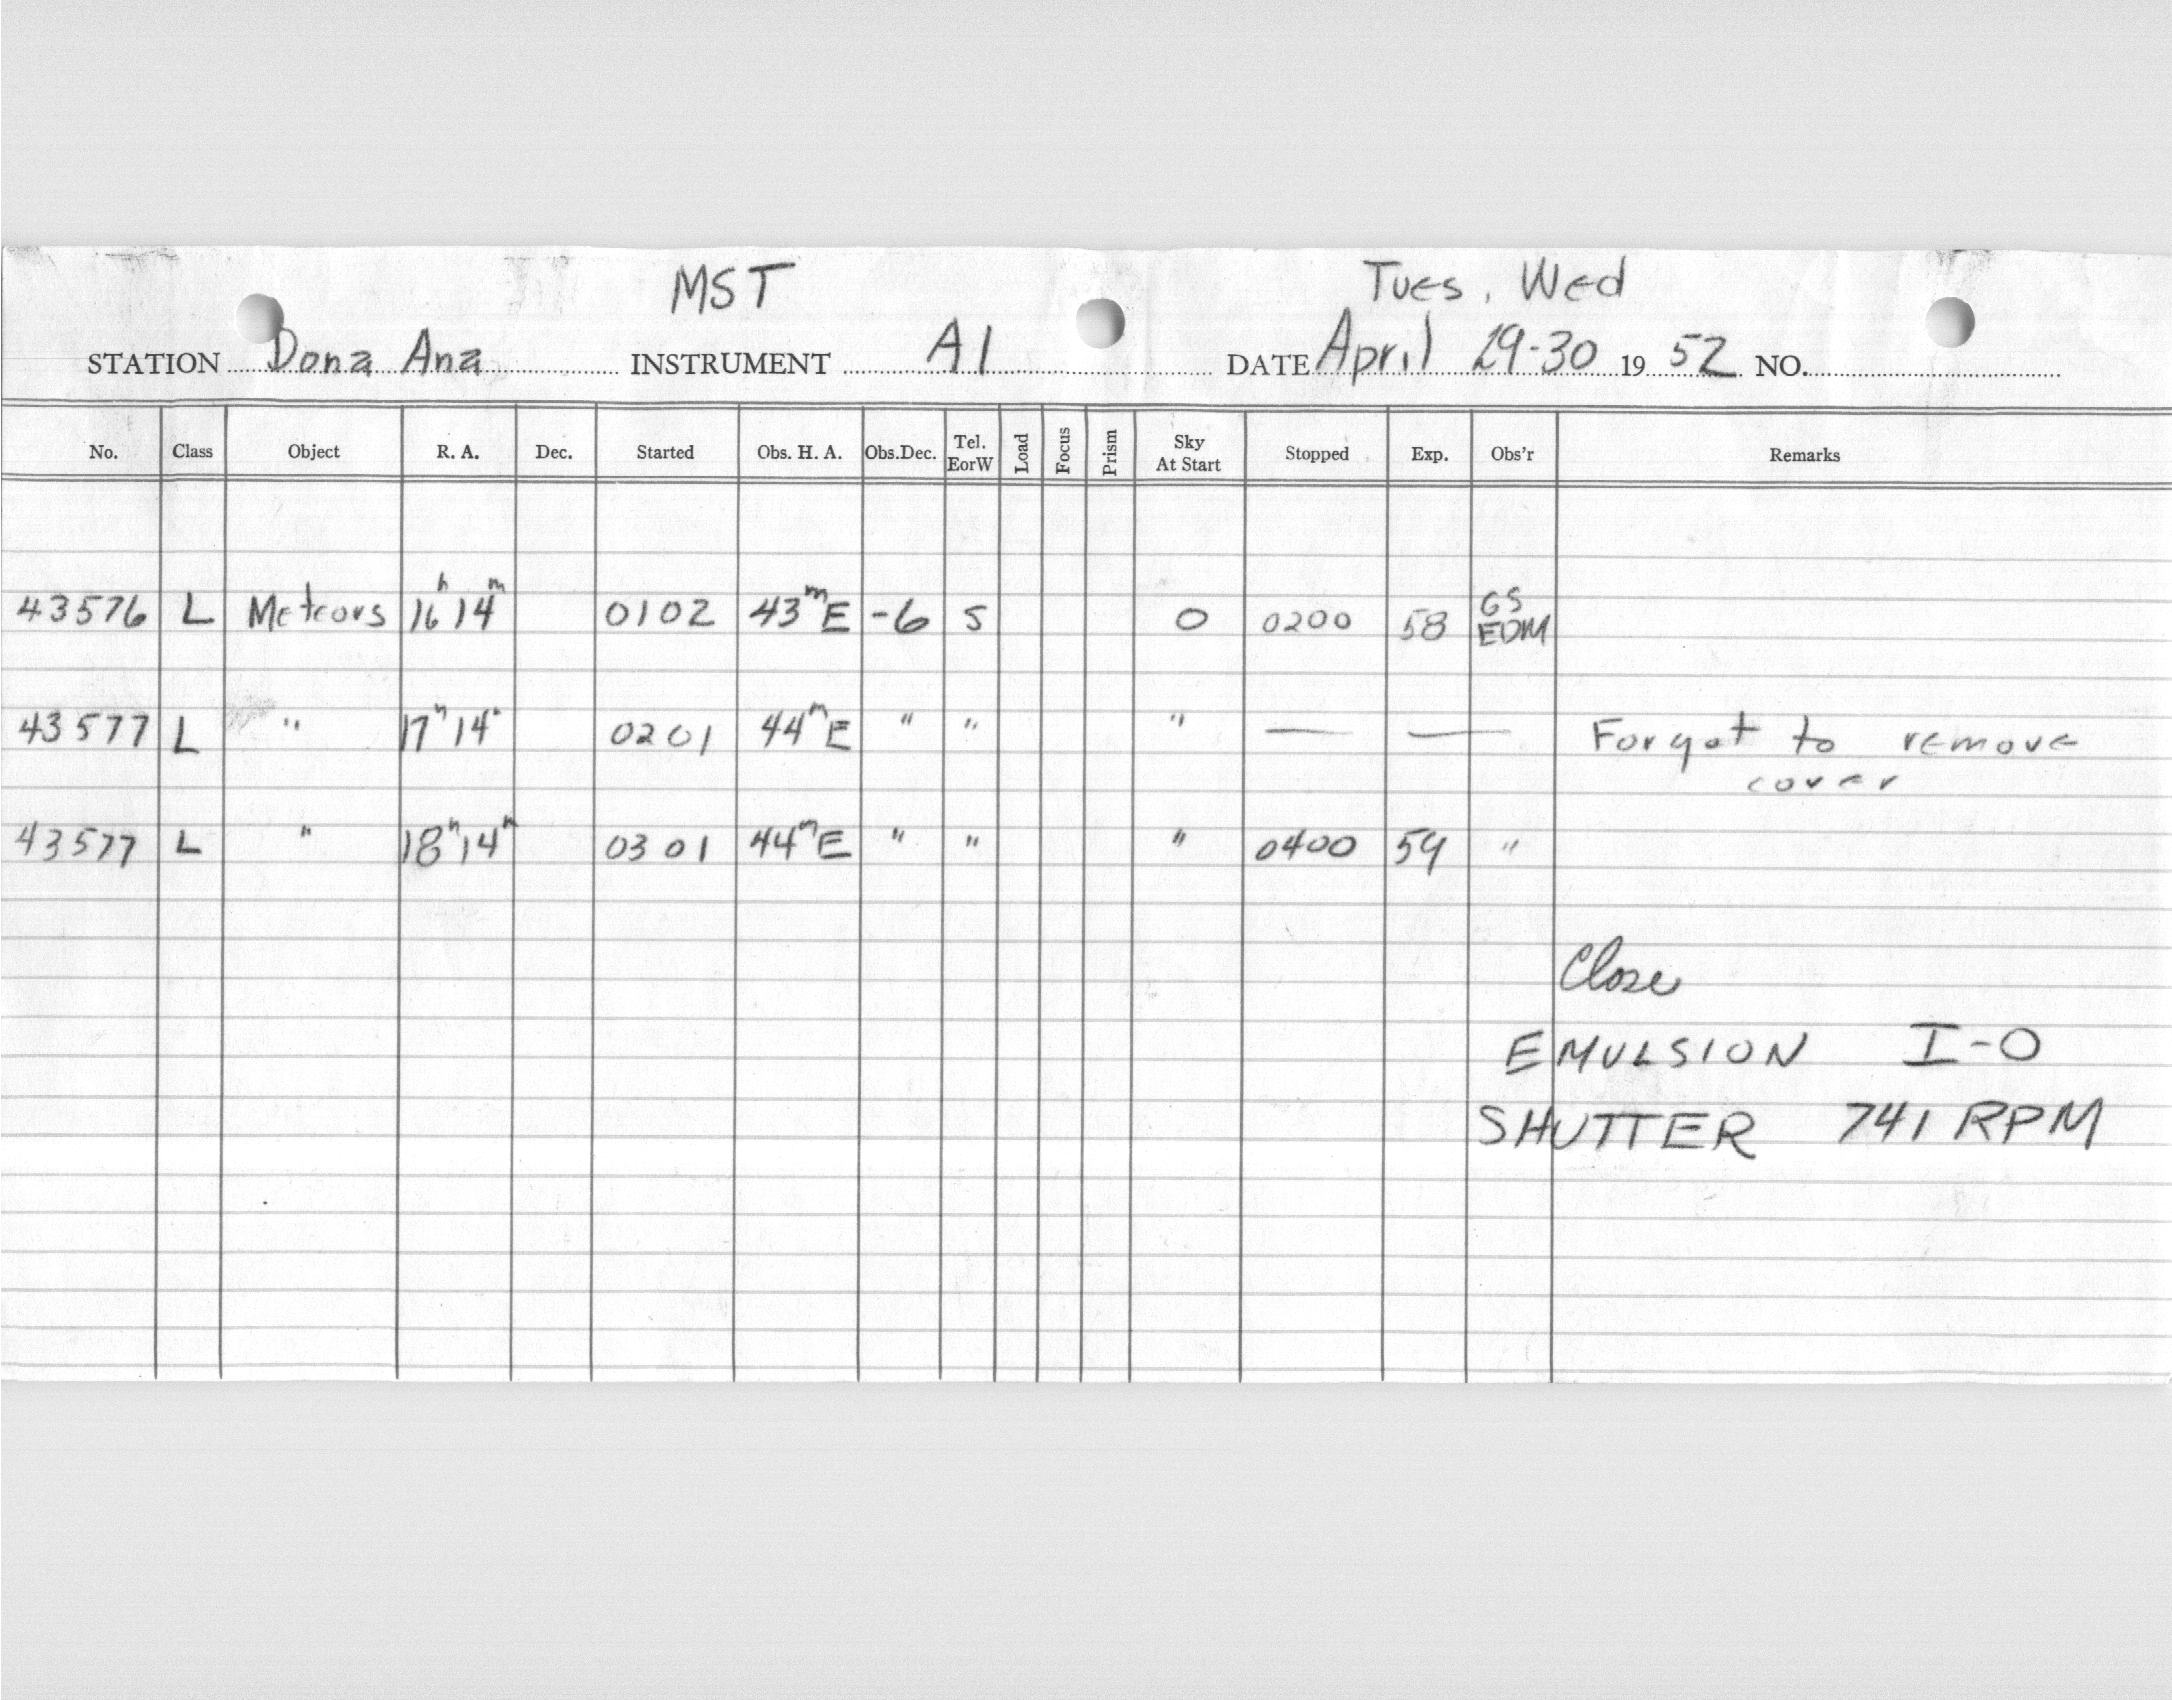 MST Tues, Wed
STATION Dona Ana INSTRUMENT A1 DATE April 29-30 19 52 NO.
No. Class Object R. A. Dec. Started Obs. H. A. Obs.Dec. Tel. EorW Load Focus Prism Sky At Start Stopped Exp. Obs'r Remarks
43576 L Meteors 16h 14m 0102 43m E -6 S 0 0200 58 GS EDM
43577 L " 17h 14m 0201 44m E " " " — — Forgot to remove
cover
43577 L " 18h 14m 0301 44m E " " " 0400 59 "
Close
EMULSION I-O
SHUTTER 741 RPM